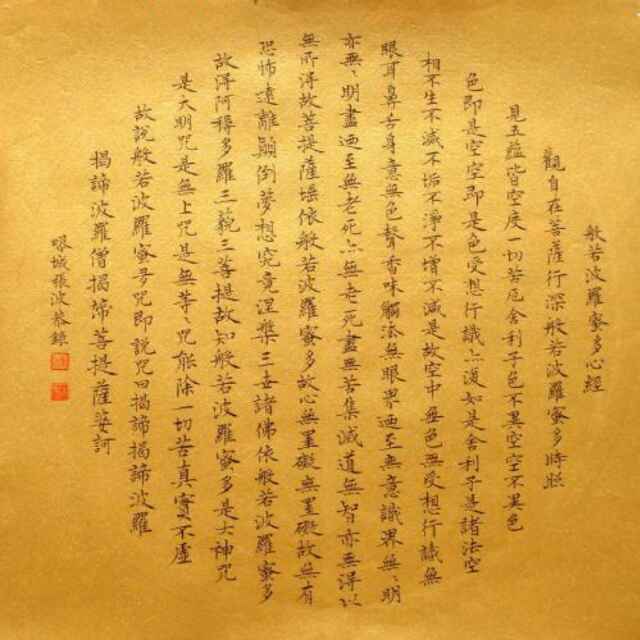 般若波羅蜜多心經
觀自在菩薩行深般若波羅蜜多時照
見五蘊皆空度一切苦厄舍利子色不異空空不異色
色即是空空即是色受想行識亦復如是舍利子是諸法空
相不生不滅不垢不淨不增不減是故空中無色無受想行識無
眼耳鼻舌身意無色聲香味觸法無眼界廼至無意識界無〻明
亦無〻明盡廼至無老死亦無老死盡無苦集滅道無智亦無得以
無所得故菩提薩埵依般若波羅蜜多故心無罣礙無罣礙故無有
恐怖遠離顛倒夢想究竟涅槃三世諸佛依般若波羅蜜多
故得阿耨多羅三藐三菩提故知般若波羅蜜多是大神咒
是大明咒是無上咒是無等〻咒能除一切苦真實不虛
故說般若波羅蜜多咒即說咒曰揭諦揭諦波羅
揭諦波羅僧揭諦菩提薩婆訶
城張波恭錄